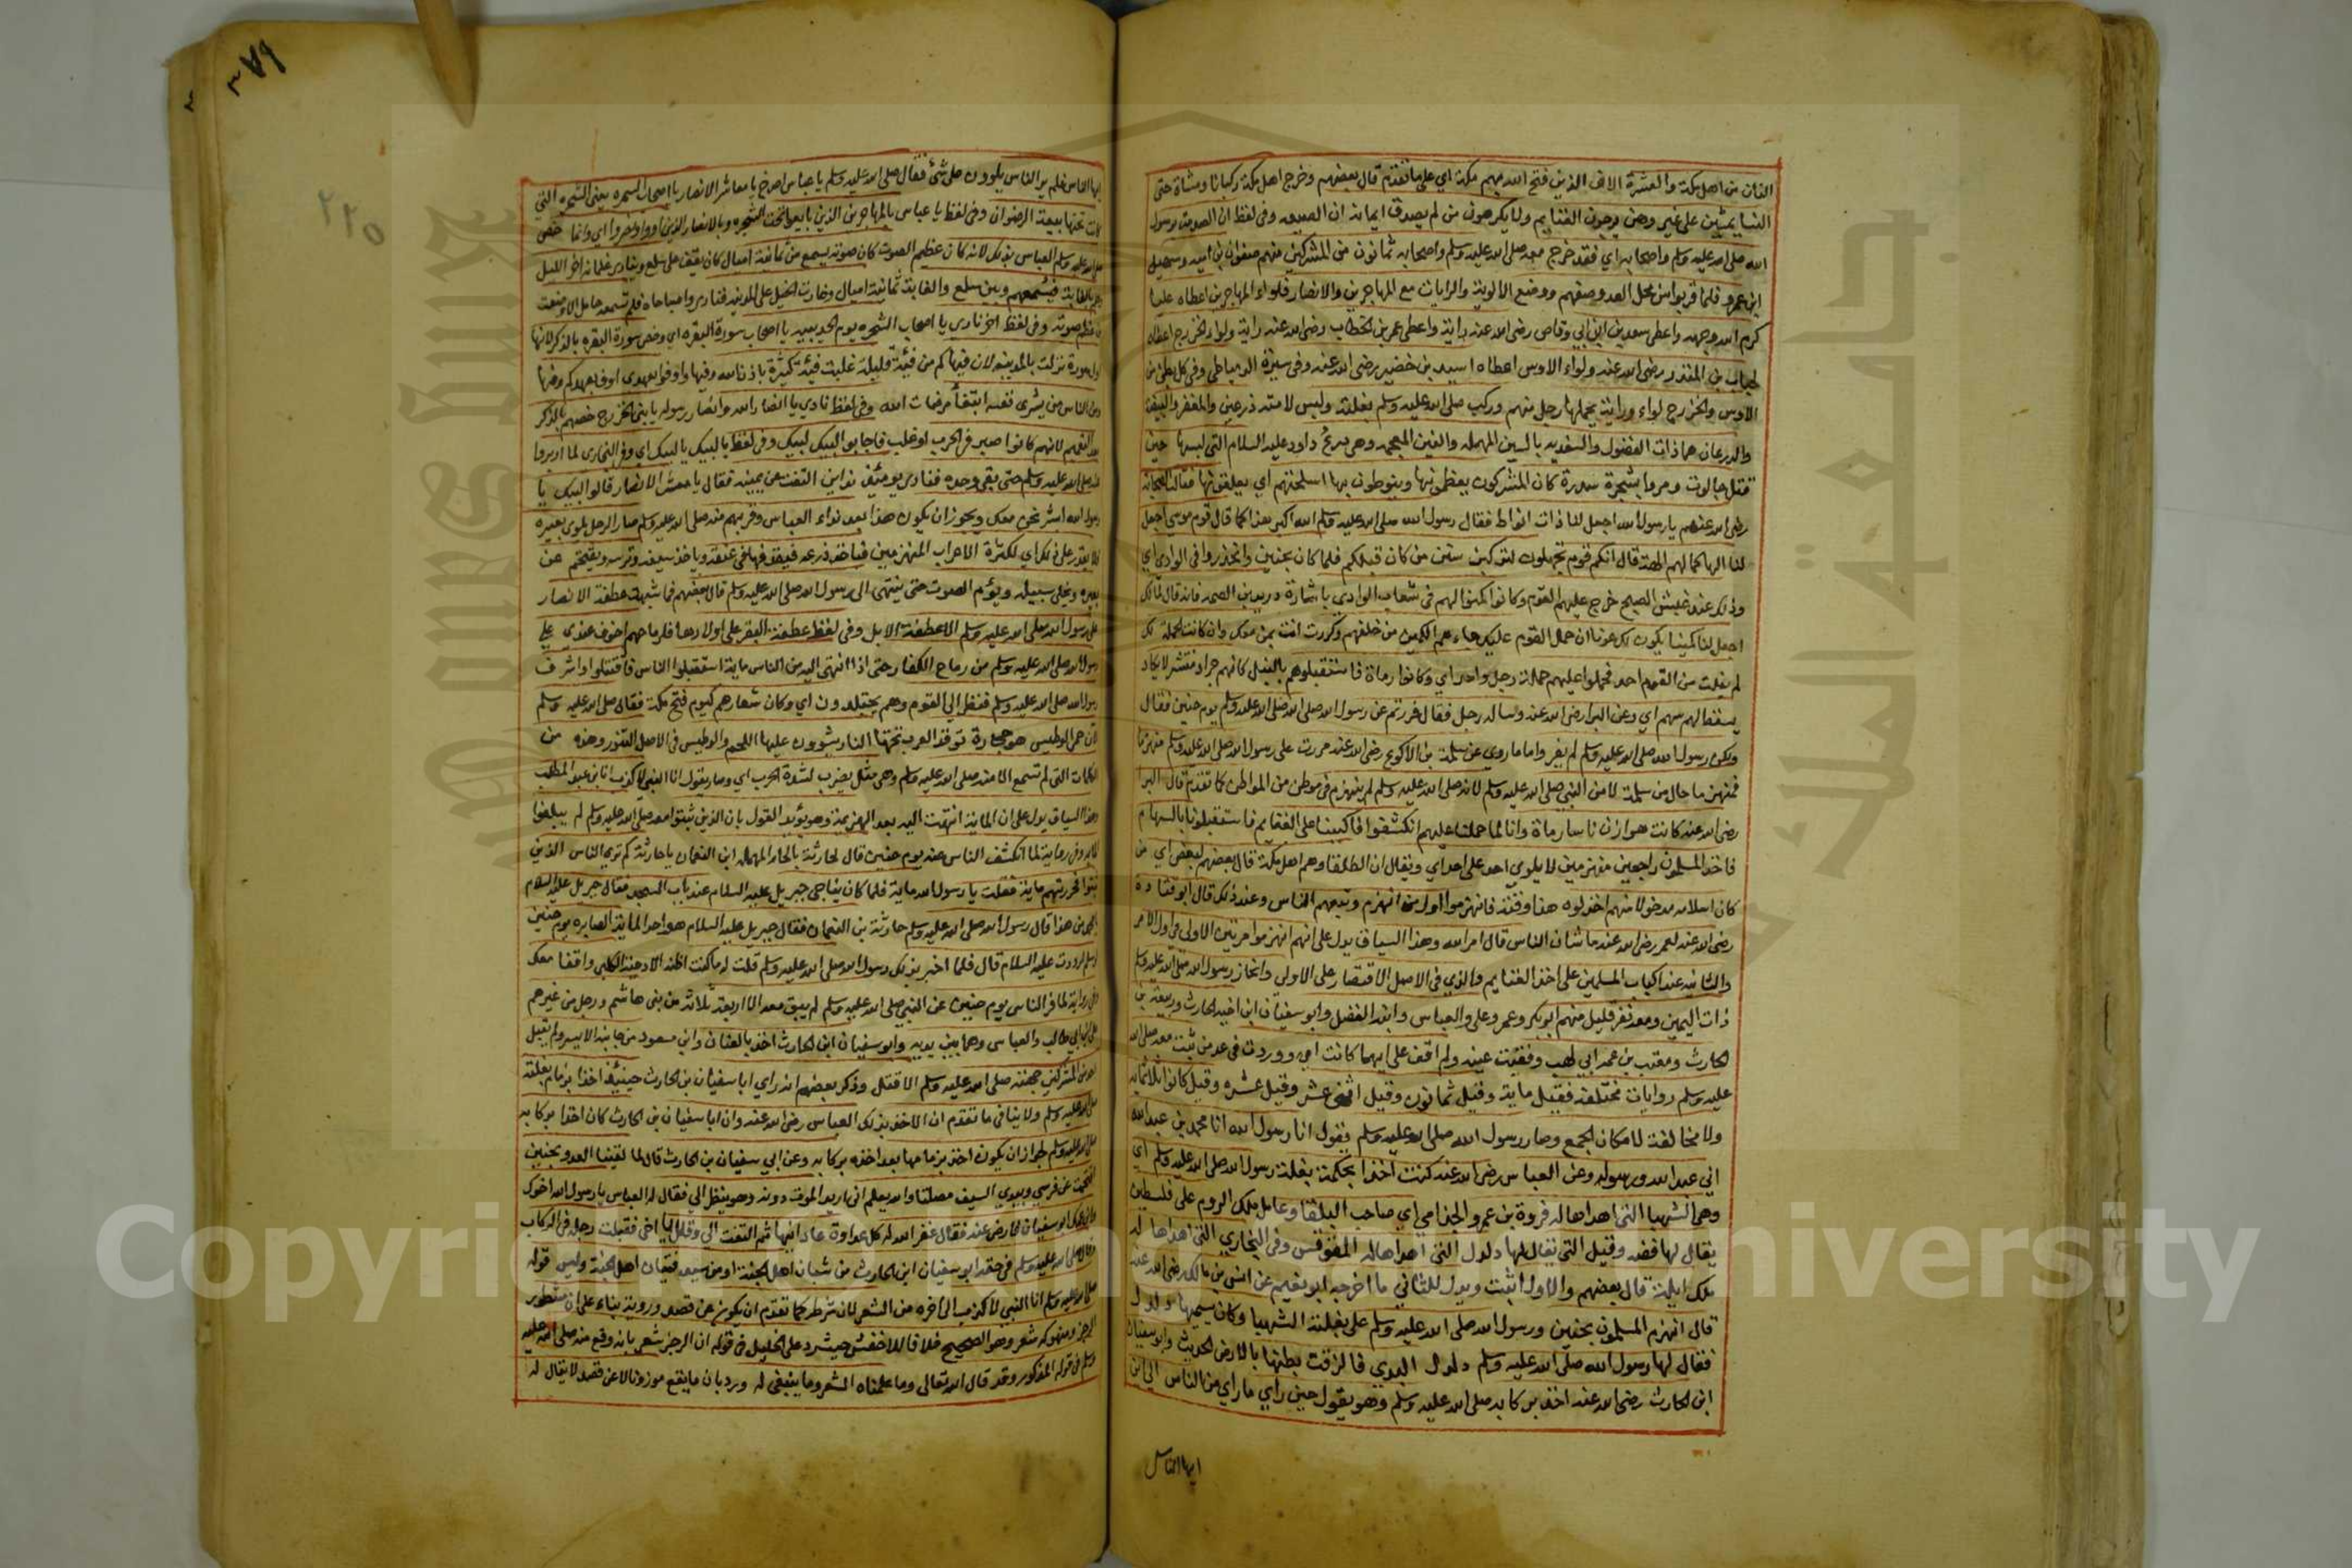 الفان من اهل مكة والعشرة الاف الذين فتح الله بهم مكة اي على ما تقدم قال بعضهم وخرج اهل مكة ركبانا ومشاة حتى
النسا يمشين على غير وهن يرجون الغنايم ولا يكرهون من لم يصدق ايمانه ان الصدمة وفي لفظ ان الصدمة برسول
الله صلى الله عليه وسلم واصحابه اي فقد خرج معه صلى الله عليه وسلم واصحابه ثمانون من المشركين منهم صفوان بن امية وسهيل
ابن عمرو فلما قربوا من محل العدو صفهم ووضع الالوية والرايات مع المهاجرين والانصار فلواء المهاجرين اعطاه عليا
كرم الله وجهه واعطى سعد بن ابي وقاص رضى الله عنه راية واعطى عمر بن الخطاب رضى الله عنه راية ولواء الخزرج اعطاه
لحباب بن المنذر رضى الله عنه ولواء الاوس اعطاه اسيد بن خضير رضى الله عنه وفي سيرة الدمياطي وفي كل بطن من
الاوس والخزرج لواء وراية يحملها رجل منهم وركب صلى الله عليه وسلم بغلته ولبس لامته درعين والمغفر والبيضة
والدرعان هما ذات الفضول والسغدية بالسين المهملة والغين المعجمة وهي درع داود عليه السلام التي لبسها حين
قتل جالوت ومروا بشجرة سدرة كان المشركون يعظمونها وينوطون بها اسلحتهم اي يعلقونها فقالت الصحابة
رضى الله عنهم يا رسول الله اجعل لنا ذات انواط فقال رسول الله صلى الله عليه وسلم الله اكبر هذا كما قال قوم موسى اجعل
لنا الها كما لهم الهة قال انكم قوم تجهلون لتركبن سنن من كان قبلكم فلما كان بحنين وانحدروا في الوادي اي
وذلك عند غبش الصبح خرج عليهم القوم وكانوا كمنوا لهم في شعاب الوادي باشارة دريد بن الصمة فانه قال لمالك
اجعل لنا كمينا يكون لك عونا ان حمل القوم عليك جاءهم الكمين من خلفهم وكررت انت بمن معك وان كانت الحملة لك
لم يفلت من القوم احد فحملوا عليهم حملة رجل واحد اي وكانوا رماة فاستقبلوهم بالنبل كانهم جراد منتشر لا يكاد
يسقط لهم سهم اي وعن البرا رضى الله عنه وساله رجل فقال فررتم عن رسول الله صلى الله عليه وسلم يوم حنين فقال
ولكن رسول الله صلى الله عليه وسلم لم يفر واما ما روي عن سلمة بن الاكوع رضى الله عنه مررت على رسول الله صلى الله عليه وسلم منهزما
فمنهزما حال من سلمة لا من النبي صلى الله عليه وسلم لانه صلى الله عليه وسلم لم ينهزم في موطن من المواطن كما تقدم قال البرا
رضى الله عنه كانت هوازن ناسا رماة وانا لما حملنا عليهم انكشفوا فاكببنا على الغنايم فاستقبلونا بالسهام
فاخذ المسلمون راجعين منهزمين لا يلوي احد على احد اي ويقال ان الطلقا وهم اهل مكة قال بعضهم لبعض اي من
كان اسلامه مدخولا منهم اخذلوه هذا وقته فانهزموا اول من انهزم وتبعهم الناس وعند ذلك قال ابو قتادة
رضى الله عنه لعمر رضى الله عنه ما شان الناس قال امر الله وهذا السياق يدل على انهم انهزموا مرتين الاولى في اول الامر
والثانية عند اكباب المسلمين على اخذ الغنايم والذي في الاصل الاقتصار على الاولى وانحاز رسول الله صلى الله عليه وسلم
ذات اليمين ومعه نفر قليل منهم ابو بكر وعمر وعلى والعباس وابنه الفضل وابو سفيان ابن اخيه الحارث وربيعة بن
الحارث ومعتب بن عمه ابي لهب وفقئت عينه ولم اقف على ايهما كانت اي ووردت في عد من ثبت معه صلى الله
عليه وسلم روايات مختلفة فقيل ماية وقيل ثمانون وقيل اثنى عشر وقيل عشرة وقيل كانوا ثلاثماية
ولا مخالفة لامكان الجمع وصار رسول الله صلى الله عليه وسلم يقول انا رسول الله انا محمد بن عبد الله
اني عبد الله ورسوله وعن العباس رضى الله عنه كنت اخذا بحكمة بغلة رسول الله صلى الله عليه وسلم اي
وهي الشهبا التي اهداها له فروة بن عمرو الجذامي اي صاحب البلقا وعامل ملك الروم على فلسطين
يقال لها فضه وقيل التي يقال لها دلدل التي اهداها له المقوقس وفي البخاري التي اهداها له
ملك ايلة قال بعضهم والاول اثبت ويدل للثاني ما اخرجه ابو نعيم عن انس بن مالك رضى الله عنه
قال انهزم المسلمون بحنين ورسول الله صلى الله عليه وسلم على بغلته الشهبا وكان يسميها دلدل
فقال لها رسول الله صلى الله عليه وسلم دلدل البدي فالزقت بطنها بالارض الحديث وابو سفيان
ابن الحارث رضى الله عنه اخذ بركابه صلى الله عليه وسلم وهو يقول حين راي ما راي من الناس الى اين
ايها الناس
٣٨٩
٢٢٥
ايها الناس فلم ير الناس يلوون على شئ فقال صلى الله عليه وسلم يا عباس اصرخ يا معاشر الانصار يا اصحاب السمرة يعني الشجرة التي
كانت تحتها بيعة الرضوان وفي لفظ يا عباس بالمهاجرين الذين بايعوا تحت الشجرة وبالانصار الذين اووا ونصروا اي وانما خص
صلى الله عليه وسلم العباس بذلك لانه كان عظيم الصوت كان صوته يسمع من ثمانية اميال كان يقف على سلع وينادي غلمانه اخر الليل
وهم بالغابة فيسمعهم وبين سلع والغابة ثمانية اميال وغارت الخيل على المدينة فنادى واصباحاه فلم تسمعه حامل الا وضعت
من عظم صوته وفي لفظ اخر نادى يا اصحاب الشجرة يوم الحديبية يا اصحاب سورة البقرة اي وخص سورة البقرة بالذكر لانها
اول سورة نزلت بالمدينة لان فيها كم من فئة قليلة غلبت فئة كثيرة باذن الله وفيها واوفوا بعهدي اوف بعهدكم وفيها
ومن الناس من يشرى نفسه ابتغا مرضات الله وفي لفظ نادي يا انصار الله وانصار رسوله يا بني الخزرج خصهم بالذكر
بعد التعميم لانهم كانوا صبر في الحرب فاجابوا لبيك لبيك وفي لفظ يا لبيك يا لبيك اي وفي البخاري لما ادبروا
عنه صلى الله عليه وسلم حتى بقى وحده فنادى يومئذ نداين التفت عن يمينه فقال يا معشر الانصار قالوا لبيك يا
رسول الله ابشر نحن معك ويجوز ان يكون هذا بعد نداء العباس وقربهم منه صلى الله عليه وسلم صار الرجل يلوي بعيره
فلا يقدر على ذلك اي لكثرة الاعراب المنهزمين فياخذ درعه فيقذفها في عنقه وياخذ سيفه وترسه ويقتحم عن
بعيره ويخلى سبيله ويؤم الصوت حتى ينتهى الى رسول الله صلى الله عليه وسلم قال بعضهم فما شبهت عطفة الانصار
على رسول الله صلى الله عليه وسلم الا عطفة الابل وفي لفظ عطفة البقر على اولادها فلرماحهم اخوف عندي على
رسول الله صلى الله عليه وسلم من رماح الكفار حتى اذا انتهى اليه من الناس ماية استقبلوا الناس فاقتتلوا واشرف
رسول الله صلى الله عليه وسلم فنظر الى القوم وهم يجتلدون اي وكان شعارهم كيوم فتح مكة فقال صلى الله عليه وسلم
الان حمى الوطيس هو حجارة توقد العرب تحتها النار يشوون عليها اللحم والوطيس في الاصل التنور وهذه من
الكلمات التي لم تسمع الا منه صلى الله عليه وسلم وهي مثل يضرب لشدة الحرب اي وصار يقول انا النبي لا كذب انا ابن عبد المطلب
وهذا السياق يدل على ان الماية انتهت اليه بعد الهزيمة وهو يؤيد القول بان الذين ثبتوا معه صلى الله عليه وسلم لم يبلغوا
الماية وفي رواية لما انكشف الناس عنه يوم حنين قال لحارثة بالحاء المهملة ابن النعمان يا حارثة كم ترى الناس الذين
ثبتوا فحزرتهم ماية فقلت يا رسول الله ماية فلما كان يناجي جبريل عليه السلام عند باب المسجد فقال جبريل عليه السلام
يا محمد من هذا قال رسول الله صلى الله عليه وسلم حارثة بن النعمان فقال جبريل عليه السلام هو احد الماية الصابرة يوم حنين
لو سلم لرددت عليه السلام قال فلما اخبر بذلك رسول الله صلى الله عليه وسلم قلت له ما كنت اظنه الا دحية الكلبي واقفا معك
وفي رواية لما فر الناس يوم حنين عن النبي صلى الله عليه وسلم لم يبق معه الا اربعة ثلاثة من بني هاشم ورجل من غيرهم
علي بن ابي طالب والعباس وهما بين يديه وابو سفيان ابن الحارث اخذ بالعنان وابن مسعود من جانبه الايسر ولم يقبل
احد من المشركين جهته صلى الله عليه وسلم الا قتل وذكر بعضهم انه راي ابا سفيان بن الحارث حينئذ اخذا بزمام بغلته
صلى الله عليه وسلم ولا ينافى ما تقدم ان الاخذ بذلك العباس رضى الله عنه وان ابا سفيان بن الحارث كان اخذا بركابه
صلى الله عليه وسلم لجواز ان يكون اخذ بزمامها بعد اخذه بركابه وعن ابي سفيان بن الحارث قال لما لقينا العدو بحنين
اقتحمت عن فرسي وبيدي السيف مصلتا والله يعلم اني اريد الموت دونه وهو ينظر الي فقال له العباس يا رسول الله اخوك
وابن عمك ابو سفيان فارض عنه فقال غفر الله له كل عداوة عادانيها ثم التفت الي وقال يا اخي فقبلت رجله في الركاب
وقال صلى الله عليه وسلم في حقه ابو سفيان ابن الحارث من شبان اهل الجنة او من سيد فتيان اهل الجنة وليس قوله
صلى الله عليه وسلم انا النبي لا كذب الى اخره من الشعر لان شرطه كما تقدم ان يكون عن قصد وروية بناء على ان مشطور
الرجز ومنهوكه شعر وهو الصحيح خلافا للاخفش حيث رد على الخليل في قوله ان الرجز شعر بانه وقع منه صلى الله عليه
وسلم في قوله المذكور وقد قال الله تعالى وما علمناه الشعر وما ينبغى له ورد بان ما يقع موزونا لا عن قصد لا يقال له
جامعة الملك سعود
King Saud University
Copyright © King Saud University